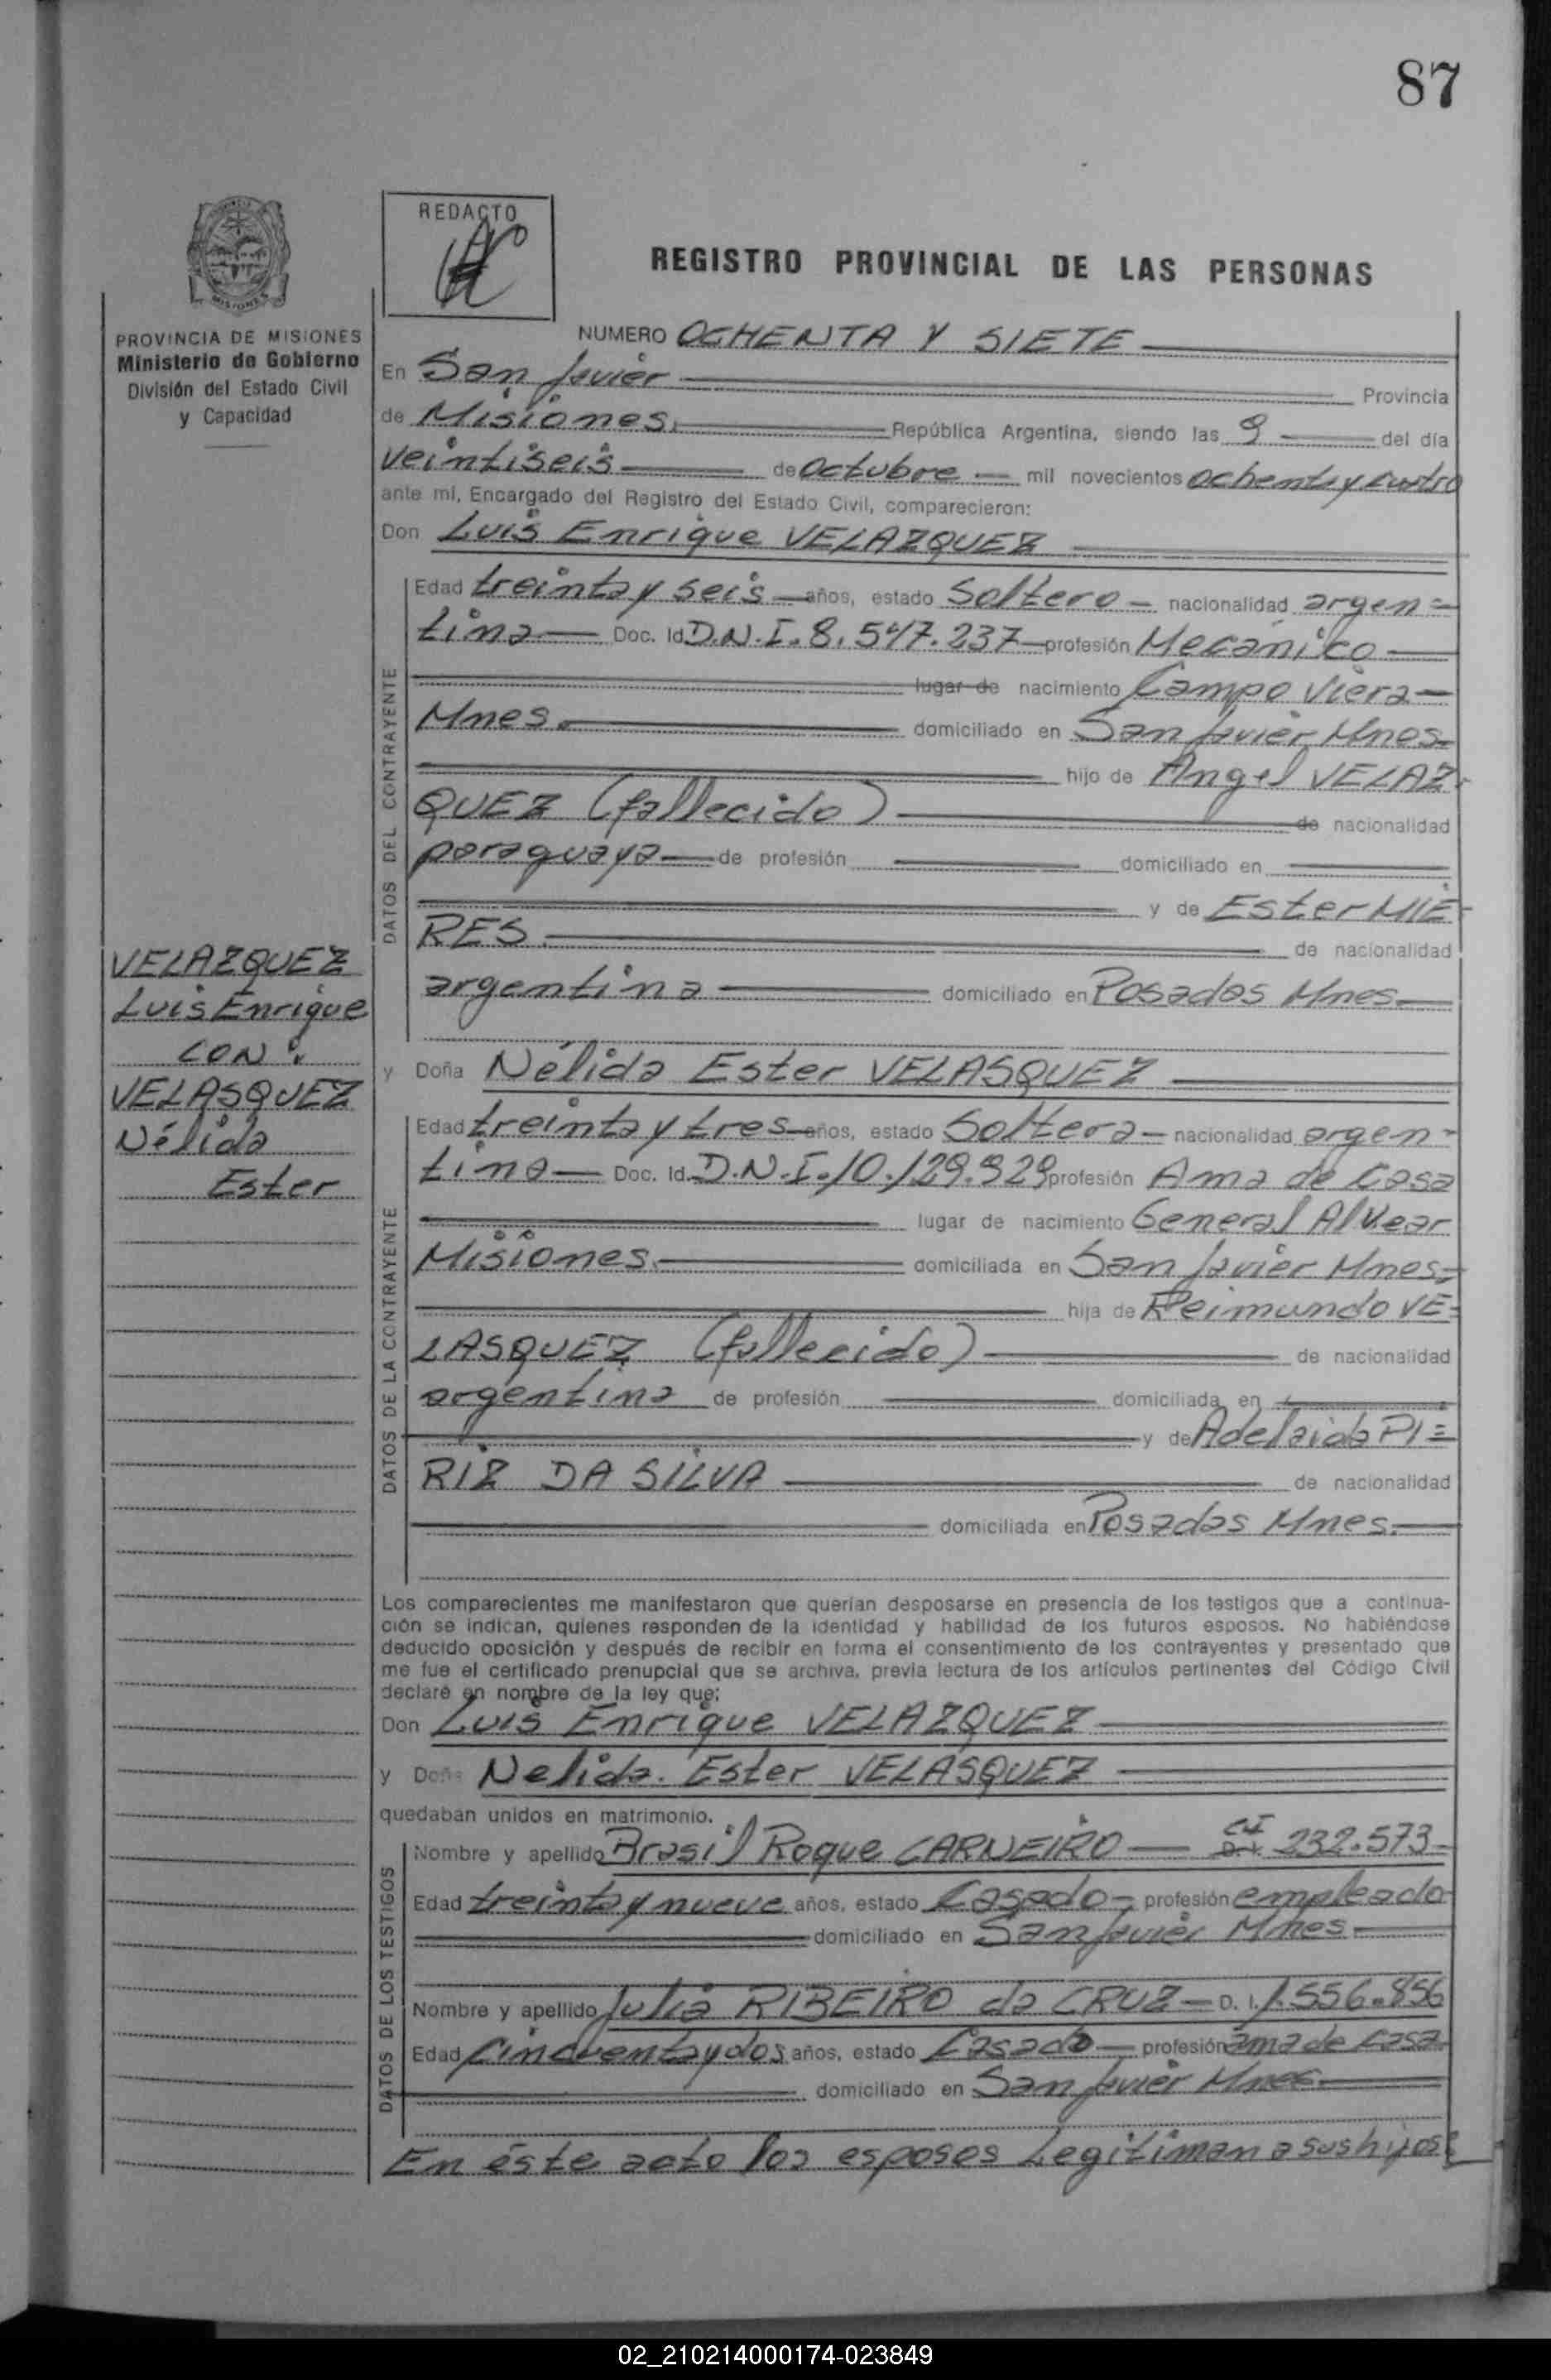 87
REDACTO
REGISTRO PROVINCIAL DE LAS PERSONAS
PROVINCIA DE MISIONES
Ministerio de Gobierno
División del Estado Civil
y Capacidad
NUMERO OCHENTA Y SIETE
En San Javier Provincia
de Misiones. República Argentina, siendo las 9 del día
veintiseis de octubre mil novecientos ochenta y cuatro
ante mí, Encargado del Registro del Estado Civil, comparecieron:
Don Luis Enrique VELAZQUEZ
DATOS DEL CONTRAYENTE
Edad treinta y seis años, estado Soltero nacionalidad argen=
tina Doc. Id. D.N.I. 8.547.237 profesión Mecánico
lugar de nacimiento Campo Viera
Mnes. domiciliado en San Javier Mnes.
hijo de Angel VELAZ-
QUEZ (fallecido) de nacionalidad
paraguaya de profesión domiciliado en
y de Ester MIE-
RES. de nacionalidad
argentina domiciliado en Posadas Mnes.
VELAZQUEZ
Luis Enrique
CON:
VELASQUEZ
Nélida
Ester
y Doña Nélida Ester VELASQUEZ
DATOS DE LA CONTRAYENTE
Edad treinta y tres años, estado Soltera nacionalidad argen-
tina Doc. Id. D.N.I. 10.129.929 profesión Ama de Casa
lugar de nacimiento General Alvear
Misiones. domiciliada en San Javier Mnes.
hija de Reimundo VE=
LASQUEZ (fallecido) de nacionalidad
argentina de profesión domiciliada en
y de Adelaida PI=
RIZ DA SILVA de nacionalidad
domiciliada en Posadas Mnes.
Los comparecientes me manifestaron que querían desposarse en presencia de los testigos que a continua-
ción se indican, quienes responden de la identidad y habilidad de los futuros esposos. No habiéndose
deducido oposición y después de recibir en forma el consentimiento de los contrayentes y presentado que
me fue el certificado prenupcial que se archiva, previa lectura de los artículos pertinentes del Código Civil
declaré en nombre de la ley que:
Don Luis Enrique VELAZQUEZ
y Doña Nelida Ester VELASQUEZ
quedaban unidos en matrimonio.
DATOS DE LOS TESTIGOS
Nombre y apellido Brasil Roque CARNEIRO CI D.I. 232.573
Edad treinta y nueve años, estado Casado profesión empleado
domiciliado en San Javier Mnes
Nombre y apellido Julia RIBEIRO da CRUZ D. I. 1.556.856
Edad Cincuenta y dos años, estado Casada profesión ama de casa
domiciliado en San Javier Mnes
En éste acto los esposos Legitiman a sus hijos:
02_210214000174-023849